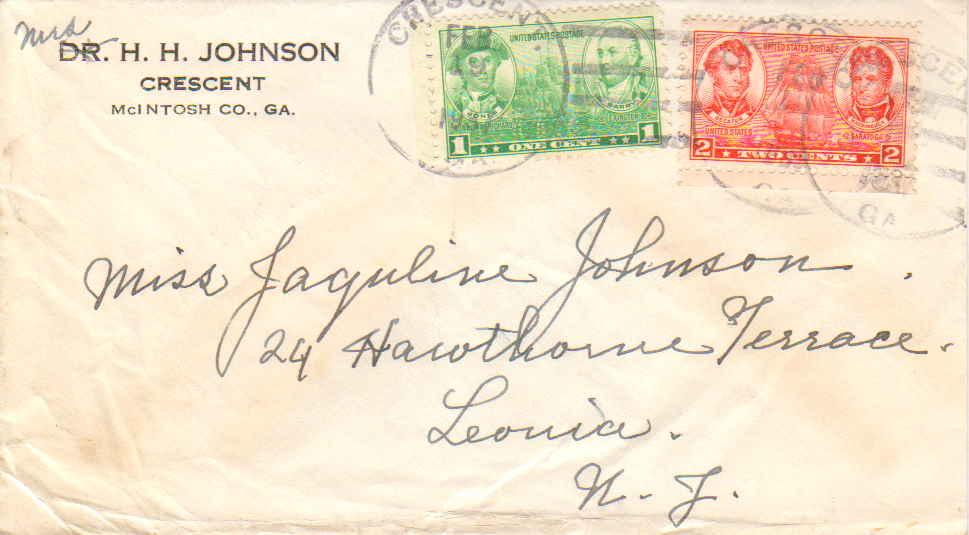 Mrs
DR. H. H. JOHNSON
CRESCENT
McINTOSH CO., GA.
CRESCENT
FEB
UNITED STATES POSTAGE
JONES
BARRY
1 ONE CENT 1
UNITED STATES POSTAGE
DECATUR
UNITED STATES
SARATOGA
2 TWO CENTS 2
CRESCENT
GA
Miss Jaquline Johnson.
24 Hawthorne Terrace.
Leonia.
N. J.